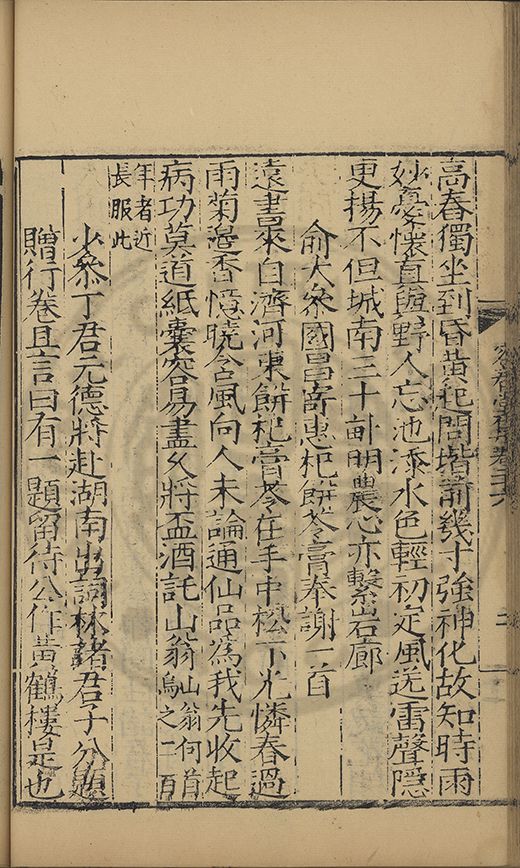 高舂獨坐到昏黃起問堦前幾寸強神化故知時雨
妙憂懷直與野人忘池添水色輕初定風送雷聲隱
更揚不但城南三十畝明農心亦繫岩廊
俞大叅國昌寄惠杞餅苓膏奉謝一首
遠書來自濟河東餅杞膏苓在手中松下尤憐春過
雨菊邊香憶曉含風向人未論通仙品為我先收起
病功莫道紙囊容易盡又將盃酒託山翁
山翁何首
烏之二百
年者近
長服此
少叅丁君元德將赴湖南出詞林諸君子分題
贈行卷且言曰有一題留待公作黃鶴樓是也